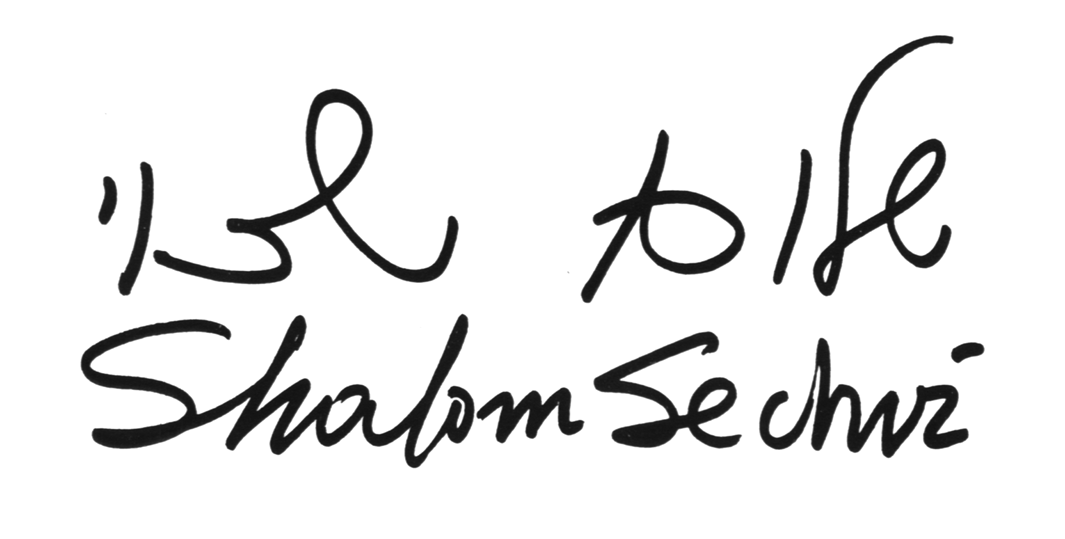 שלום שכוי
Shalom Sechvi